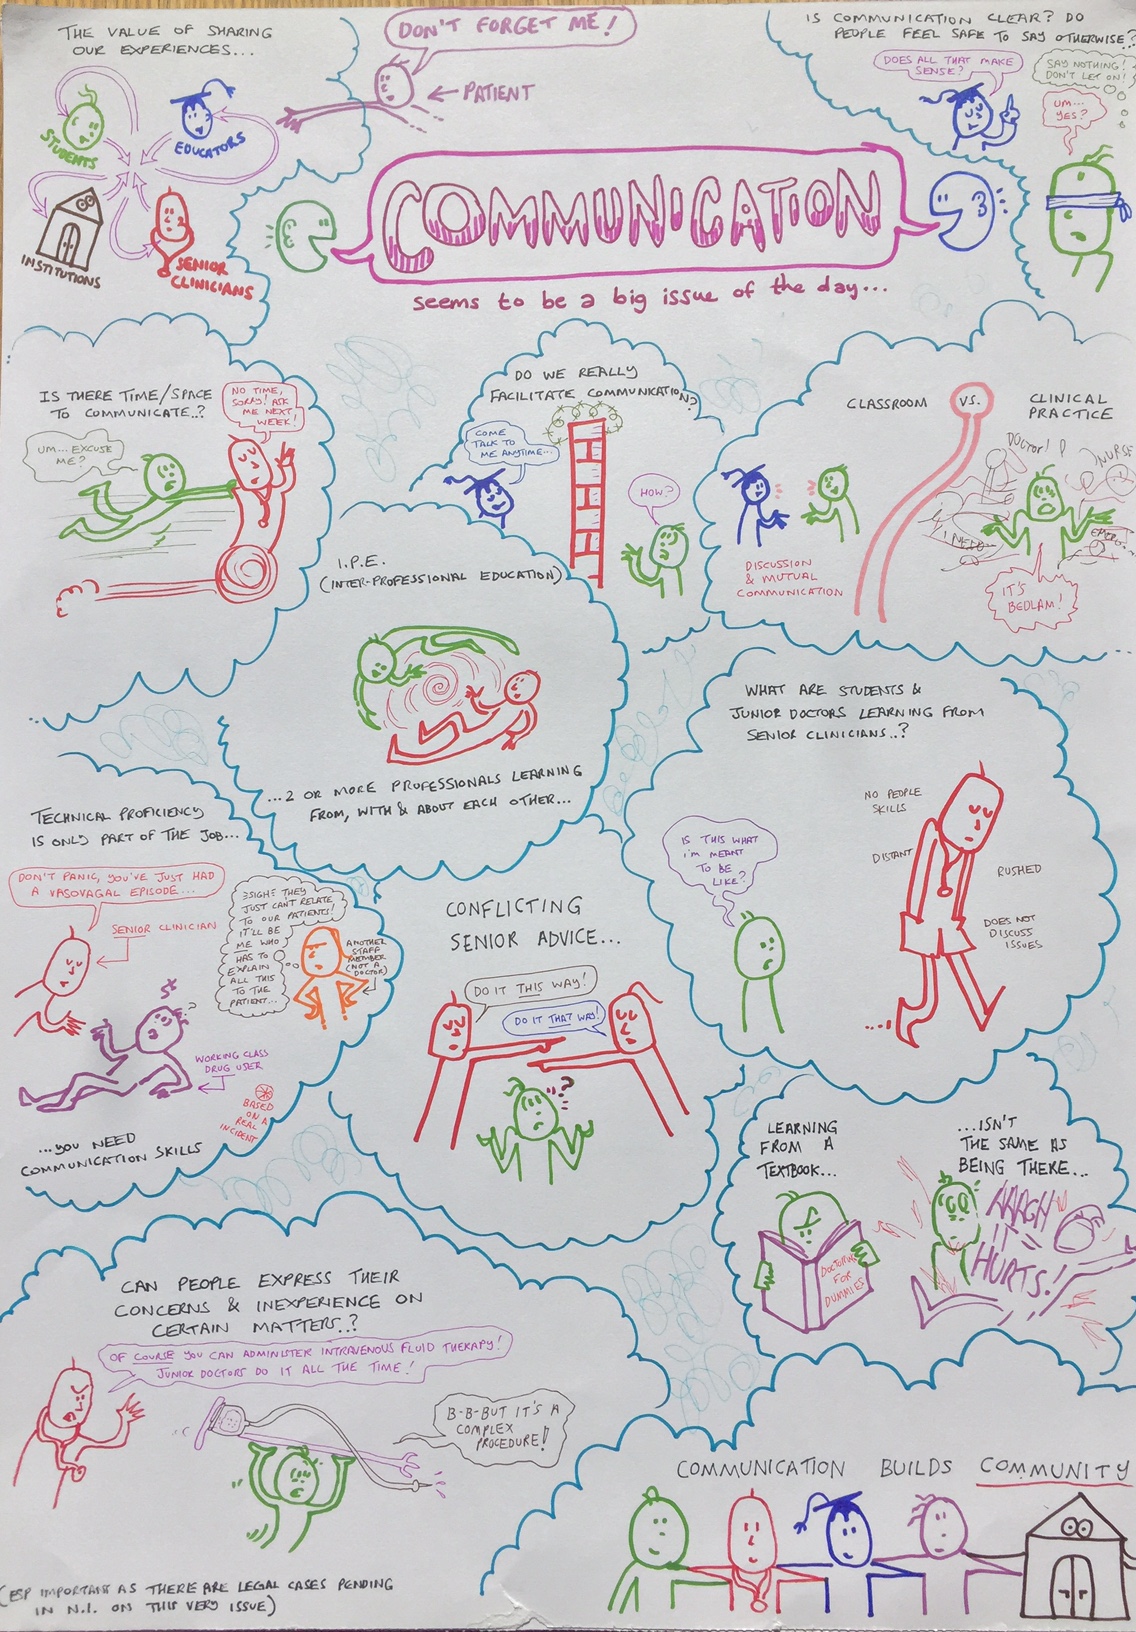 THE VALUE OF SHARING
OUR EXPERIENCES...
STUDENTS
EDUCATORS
INSTITUTIONS
SENIOR
CLINICIANS
DON'T FORGET ME!
← PATIENT
IS COMMUNICATION CLEAR? DO
PEOPLE FEEL SAFE TO SAY OTHERWISE?
DOES ALL THAT MAKE
SENSE?
SAY NOTHING!
DON'T LET ON!
UM...
YES?
COMMUNICATION
seems to be a big issue of the day...
IS THERE TIME/SPACE
TO COMMUNICATE..?
NO TIME,
SORRY! ASK
ME NEXT
WEEK!
UM... EXCUSE
ME?
DO WE REALLY
FACILITATE COMMUNICATION?
COME
TALK TO
ME ANYTIME...
HOW?
CLASSROOM VS. CLINICAL
PRACTICE
DISCUSSION
& MUTUAL
COMMUNICATION
DOCTOR!
NURSE
I NEED
IT'S
BEDLAM!
I.P.E.
(INTER-PROFESSIONAL EDUCATION)
...2 OR MORE PROFESSIONALS LEARNING
FROM, WITH & ABOUT EACH OTHER...
WHAT ARE STUDENTS &
JUNIOR DOCTORS LEARNING FROM
SENIOR CLINICIANS..?
NO PEOPLE
SKILLS
DISTANT
RUSHED
DOES NOT
DISCUSS
ISSUES
IS THIS WHAT
I'M MEANT
TO BE
LIKE?
TECHNICAL PROFICIENCY
IS ONLY PART OF THE JOB...
DON'T PANIC, YOU'VE JUST HAD
A VASOVAGAL EPISODE...
SENIOR CLINICIAN
SIGH THEY
JUST CAN'T RELATE
TO OUR PATIENTS!
IT'LL BE
ME WHO
HAS TO
EXPLAIN
ALL THIS
TO THE
PATIENT...
ANOTHER
STAFF
MEMBER
(NOT A
DOCTOR)
WORKING CLASS
DRUG USER
BASED
ON A
REAL
INCIDENT
...YOU NEED
COMMUNICATION SKILLS
CONFLICTING
SENIOR ADVICE...
DO IT THIS WAY!
DO IT THAT WAY!
LEARNING
FROM A
TEXTBOOK...
DOCTORING
FOR
DUMMIES
...ISN'T
THE SAME AS
BEING THERE...
AAAGH
IT
HURTS!
CAN PEOPLE EXPRESS THEIR
CONCERNS & INEXPERIENCE ON
CERTAIN MATTERS..?
OF COURSE YOU CAN ADMINISTER INTRAVENOUS FLUID THERAPY!
JUNIOR DOCTORS DO IT ALL THE TIME!
B-B-BUT IT'S A
COMPLEX
PROCEDURE!
(ESP IMPORTANT AS THERE ARE LEGAL CASES PENDING
IN N.I. ON THIS VERY ISSUE)
COMMUNICATION BUILDS COMMUNITY